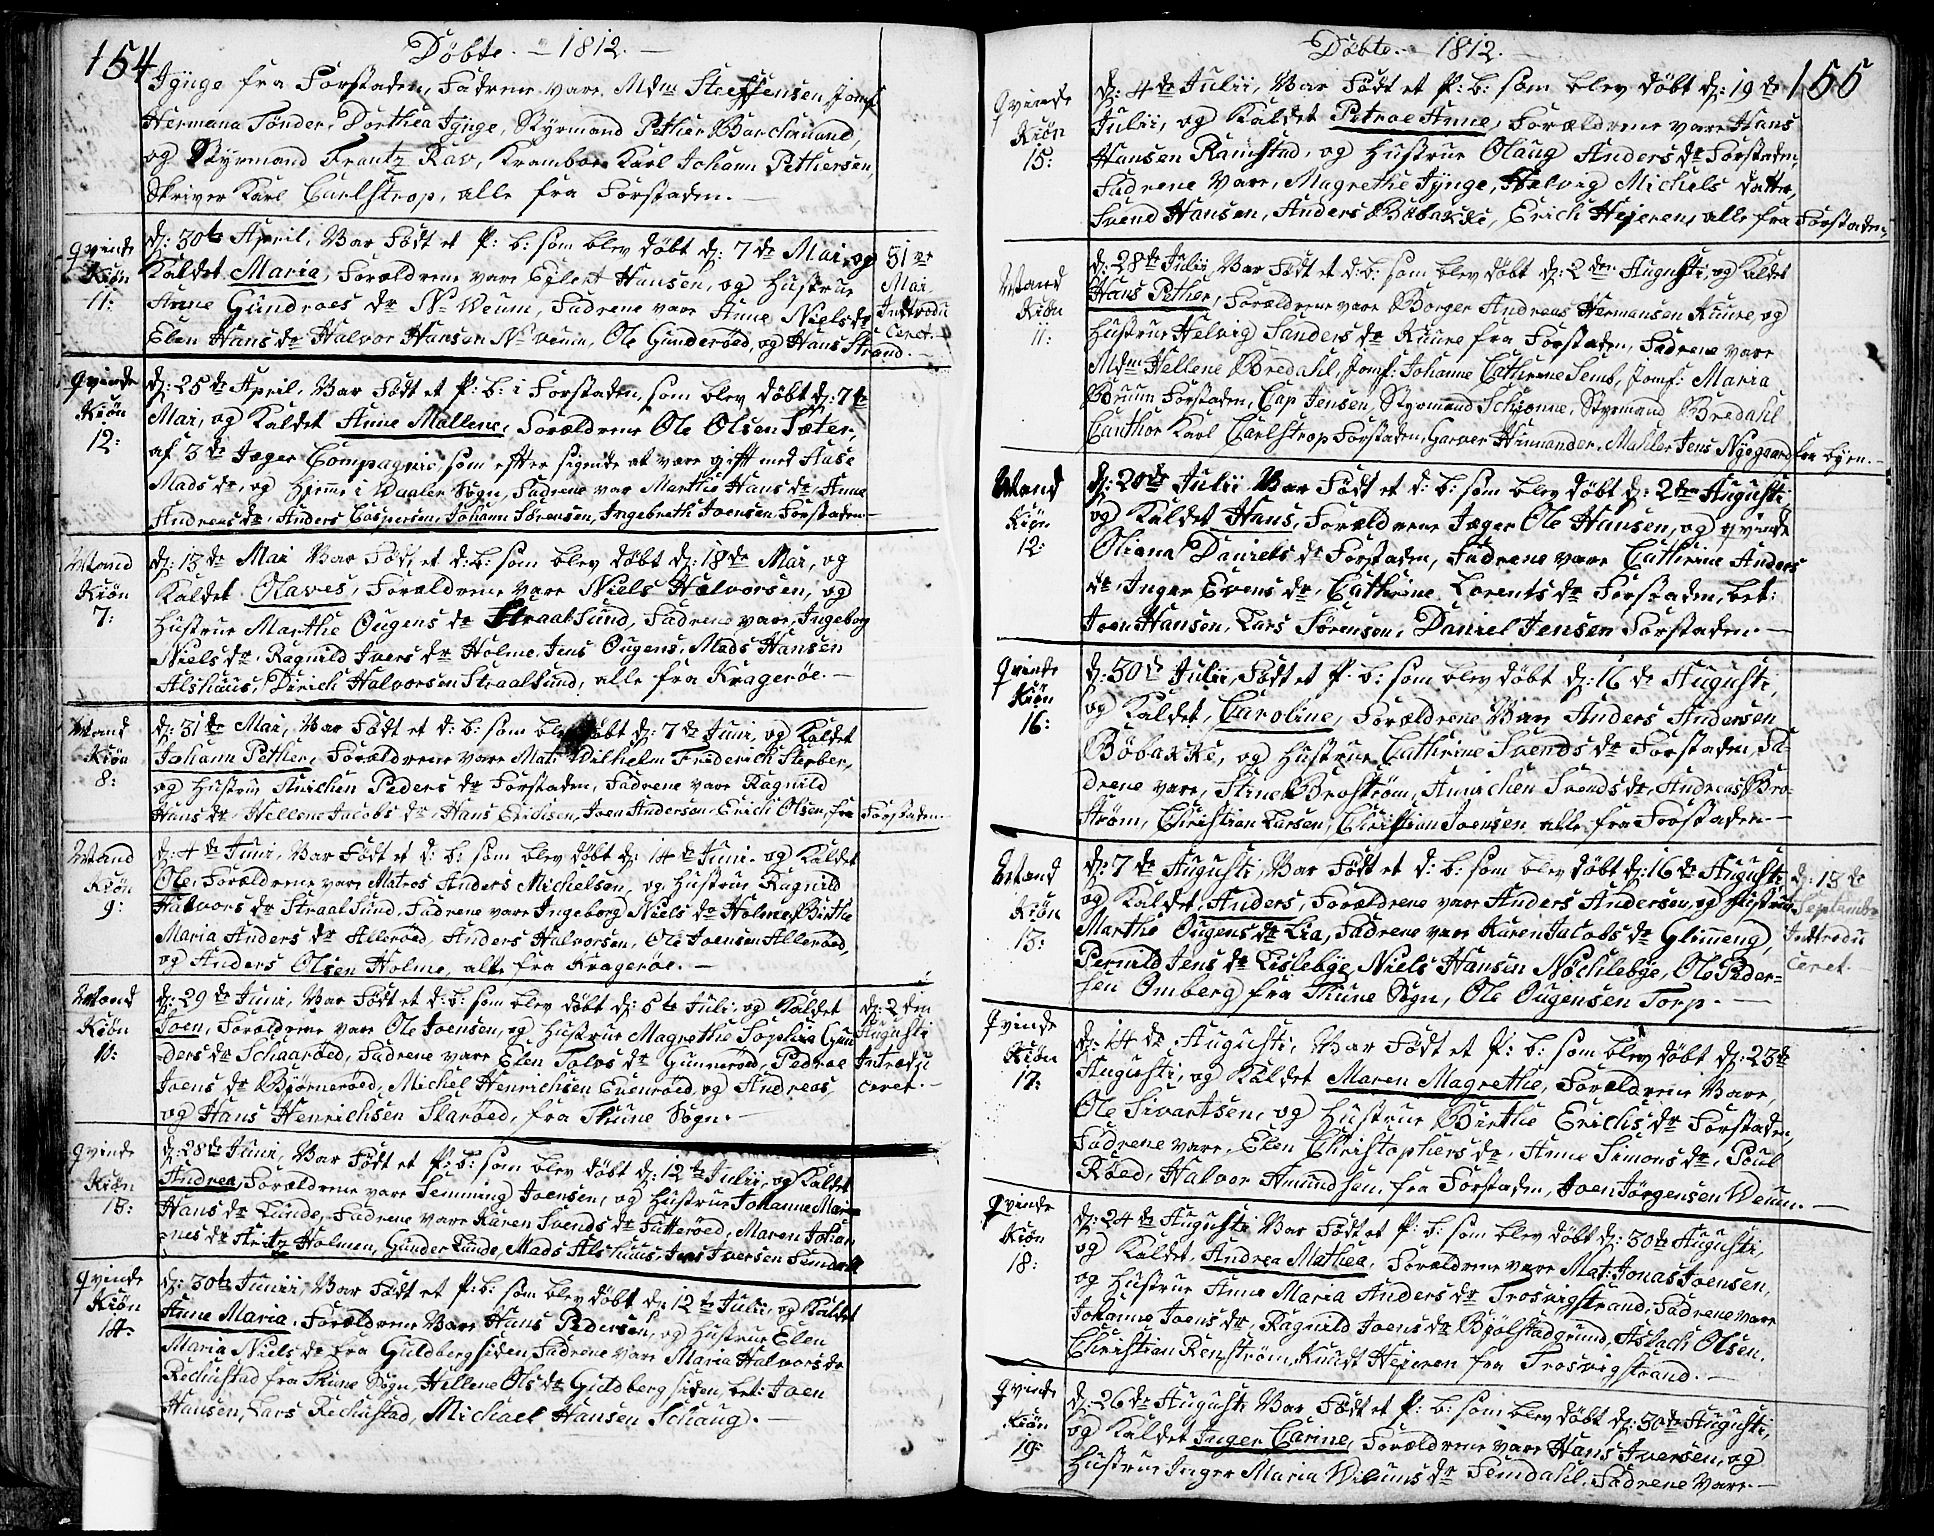 154
Döbte. — 1812. —
Jÿnge fra Forstaden, Fadrene vare Mdm Steffensen, Jomf:
Hermana Tønder, Dorthea Jÿnge, Stÿrmand Pether Barchmand,
og Stÿrmand Frantz Rav, Krambor Karl Johann Pethersen,
Skriver Karl Carlstrop, alle fra Forstaden. —
Qvinde
Kiøn
11:
d: 30te April, Var Født et P: b: som blev døbt d: 7de Mai, og
Kaldet Maria, Forældrene vare Eglert Hansen, og Hustrue
Anne Gundroes dr N: Weum, Fadrene vare Anne Niels dr
Elen Hans dr Halvor Hansen N: Weum, Ole Gunderøed, og Hans Strand. —
31te
Mai.
Indtrodu
Ceret.
Qvinde
Kiøn
12:
d: 25de April, Var Født et P: b: i Forstaden, som blev døbt d: 7de
Mai, og Kaldet Anne Mallene, Forældrene Ole Olsen Sæter,
af 3de Jæger Compagnie, som efter sigende at være gift med Aase
Mads dr, og Hjeme i Waaler Sogn, Fadrene var Marthe Hans dr, Anne
Andreas dr, Anders Caspersen, Johann Sørensen, Ingebreth Joensen Forstaden —
Mand
Kiøn
7:
d: 13de Mai Var Født et d: b: som blev døbt d: 18de Mai, og
Kaldet Olaves, Forældrene vare Niels Halvorsen, og
Hustrue Marthe Ougens dr Straalsund, Fadrene vare, Ingeborg
Niels dr, Ragnild Ivers dr Holme, Jens Ougens, Mads Hansen
Alshuus, Dirich Halvorsen Straalsund, alle fra Kragerøe. —
Mand
Kiøn
8:
d: 31te Mai, Var Født et d: b: som blev døbt d: 7de Juni, og Kaldet
Johann Pether, Forældrene vare Mat: Wilhelm Friderich Sterber,
og Hustrue Anichen Peders dr Forstaden, Fadrene vare Ragnild
Hans dr, Hellene Jacobs dr, Hans Erichsen, Joen Andersen, Erich Olsen, fra Forstaden. —
Mand
Kiøn
9:
d: 4de Juni, Var Født et d: b: som blev døbt d: 14de Juni, og Kaldet
Ole, Forældrene vare Matros Anders Michelsen, og Hustrue Ragnild
Halvors dr Straalsund, Fadrene vare Ingeborg Niels dr Holme, Birthe
Maria Anders dr Allerøed, Anders Halvorsen, Ole Joensen Allerøed,
og Anders Olsen Holme, alle fra Kragerøe. —
Mand
Kiøn
10:
d: 29de Juni, Var Født et d: b: som blev døbt d: 5te Juli, og Kaldet
Joen, Forældrene vare Ole Joensen, og Hustrue Magrethe Sophia Gun
ders dr Schaarøed, Fadrene vare Elen Talvs dr Gunnerøed, Pedroe
Joens dr Biørnerøed, Michel Henrichsen Enenrøed, og Andreas,
og Hans Henrichsen Skarøed, fra Thune Sogn. —
d: 2den
Augusti
Introdu
ceret. —
Qvinde
Kiøn
13:
d: 28de Juni, Var Født et P: b: som blev døbt d: 12te Julii, og Kaldet
Andrea, Forældrene vare Femming Joensen, og Hustrue Johanne Mar=
Hans dr Lunde, Fadrene vare Karen Svends dr Futterøed, Maren Johan
nes dr Holmen, Gunder Lunde, Mads Alshuus, Jens Iversen Femdahl
Qvinde
Kiøn
14:
d: 30te Junii, Var Født et P: b: som blev døbt d: 12te Julii, og Kaldet
Anne Maria, Forældrene Vare Hans Pedersen, og Hustrue Elen
Maria Niels dr fra Guldbergsiden, Fadrene vare Maria Halvors dr
Rechustad fra Thune Sogn, Hellene Ols dr Guldbergsiden, bet: Joen
Hansen, Lars Rechustad, Michael Hansen Schaug. —
155
Döbte. — 1812. —
Qvinde
Kiøn
15:
d: 4de Julii, Var Født et P: b: som blev døbt d: 19de
Julii, og Kaldet Petroe Anne, Forældrene vare Hans
Hansen Ramstad, og Hustrue Olaug Anders dr Forstaden,
Fadrene Vare, Magrethe Jÿnge, Helvig Michels datter,
Svend Hansen, Anders Böbakke, Erich Hejeren, alle fra Forstaden,
Mand
Kiøn
11:
d: 28de Julii, Var Født et d: b: som blev døbt d: 2den Augusti, og Kaldet
Hans Pether, Forældrene vare Borger Andreas Hermansen Kuure, og
Hustrue Helvig Sanders dr Kuure fra Forstaden, Fadrene vare
Mdm: Hellene Bredahl, Jomf: Johanne Cathrine Semb, Jomf: Maria
Bruun Forstaden, Cap Jensen, Styrmand Schjönne, Styrmand Bredahl
Canthor Karl Carlstrop Forstaden, Garver Hinmander, Mahler Jens Nÿegaard fra byen. —
Mand
Kiøn
12:
d: 20de Julii Var Født et d: b: som blev døbt d: 2den Augusti
og Kaldet Hans, Forældrene Jæger Ole Hansen, og qvinde
Oliana Daniels dr Forstaden, Fadrene vare Cathrine Anders
dr, Inger Evens dr, Cathrine Lorents dr Forstaden, bet:
Joen Hansen, Lars Sørensen, Daniel Jensen Forstaden. —
Qvinde
Kiøn
16:
d: 30te Julii, Født et P: b: som blev døbt d: 16de Augusti,
og Kaldet, Caroline, Forældrene Vare Anders Andersen
Böbakke, og Hustrue Cathrine Svends dr Forstaden, Fa=
drene vare, Stine Broström, Anichen Svends dr, Andreas Bro=
ström, Christian Larsen, Christian Joensen, alle fra Forstaden. —
Mand
Kiøn
13:
d: 7de Augusti, Var Født et d: b: som blev døbt d: 16de Augusti,
og Kaldet, Anders, Forældrene vare Anders Andersen, og Hustrue
Marthe Ougens dr Lia, Fadrene vare Karen Jacobs dr Glimeng,
Pernild Jens dr Lislebÿe, Niels Hansen Nöchlebÿe, Ole Peder=
sen Omberg fra Thune Sogn, Ole Ougensen Torp. —
d: 13de
Septembr
Indtrodu
ceret. —
Qvinde
Kiøn
17:
d: 14de Augusti, Var Født et P: b: som blev døbt d: 23de
Augusti, og Kaldet Maren Magrethe, Forældrene Vare,
Ole Sivartsen, og Hustrue Birthe Erichs dr Forstaden,
Fadrene vare, Elen Christophers dr, Anne Simons dr, Poul
Røed, Halvor Amundsen, fra Forstaden, Joen Jörgensen Weum. —
Qvinde
Kiøn
18:
d: 24de Augusti Var Født et P: b: som blev døbt d: 30te Augusti,
og Kaldet, Andrea Mathea, Forældrene vare Mat: Jonas Joensen,
og Hustrue Anne Maria Anders dr Trosvigstrand, Fadrene vare
Johanne Joens dr, Ragnild Joens dr Bjölstadgrund, Aslach Olsen,
Christian Renström, Knudt Hejeren fra Trosvigstrand. —
Qvinde
Kiøn
19:
d: 26de Augusti Var Født et P: b: som blev døbt d: 30te Augusti,
og Kaldet Inger Carine, Forældrene vare Hans Iversen, og
Hustrue Inger Maria Wilums dr Femdahl, Fadrene Vare —